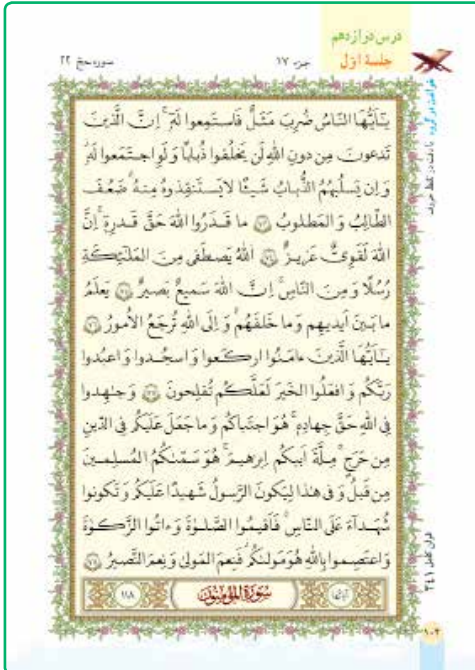 درس دوازدهم
جلسهٔ اوّل
جزء ۱۷
سوره حج ۲۲
یٰۤاَیُّهَا النّاسُ ضُرِبَ مَثَلٌ فَاستَمِعوا لَهٗۤ ۚ اِنَّ الَّذینَ
تَدعونَ مِن دونِ اللهِ لَن یَخلُقوا ذُبابًا وَ لَوِ اجتَمَعوا لَهٗ ۖ
وَ اِن یَسلُبهُمُ الذُّبابُ شَیئًا لا یَستَنقِذوهُ مِنهُ ۚ ضَعُفَ
الطّالِبُ وَ المَطلوبُ ﴿۷۳﴾ ما قَدَرُوا اللهَ حَقَّ قَدرِهٖ ۗ اِنَّ
اللهَ لَقَویٌّ عَزیزٌ ﴿۷۴﴾ اَللهُ یَصطَفی مِنَ المَلٰٓئِکَةِ
رُسُلًا وَ مِنَ النّاسِ ۚ اِنَّ اللهَ سَمیعٌ بَصیرٌ ﴿۷۵﴾ یَعلَمُ
ما بَینَ اَیدیهِم وَ ما خَلفَهُم ۗ وَ اِلَی اللهِ تُرجَعُ الاُمورُ ﴿۷۶﴾
یٰۤاَیُّهَا الَّذینَ ءامَنُوا ارکَعوا وَ اسجُدوا وَ اعبُدوا
رَبَّکُم وَ افعَلُوا الخَیرَ لَعَلَّکُم تُفلِحونَ ﴿۷۷﴾ وَ جٰهِدوا
فِی اللهِ حَقَّ جِهادِهٖ ۚ هُوَ اجتَباکُم وَ ما جَعَلَ عَلَیکُم فِی الدّینِ
مِن حَرَجٍ ۚ مِلَّةَ اَبیکُم اِبرٰهیمَ ۚ هُوَ سَمّٰکُمُ المُسلِمینَ
مِن قَبلُ وَ فی هٰذا لِیَکونَ الرَّسولُ شَهیدًا عَلَیکُم وَ تَکونوا
شُهَدآءَ عَلَی النّاسِ ۚ فَاَقیمُوا الصَّلوٰةَ وَ ءاتُوا الزَّکوٰةَ
وَ اعتَصِموا بِاللهِ هُوَ مَولٰکُم ۖ فَنِعمَ المَولیٰ وَ نِعمَ النَّصیرُ ﴿۷۸﴾
سُورَةُ المُؤمِنُون
۱۱۸
قرآن کامل ۳۴۱
۱۰۲